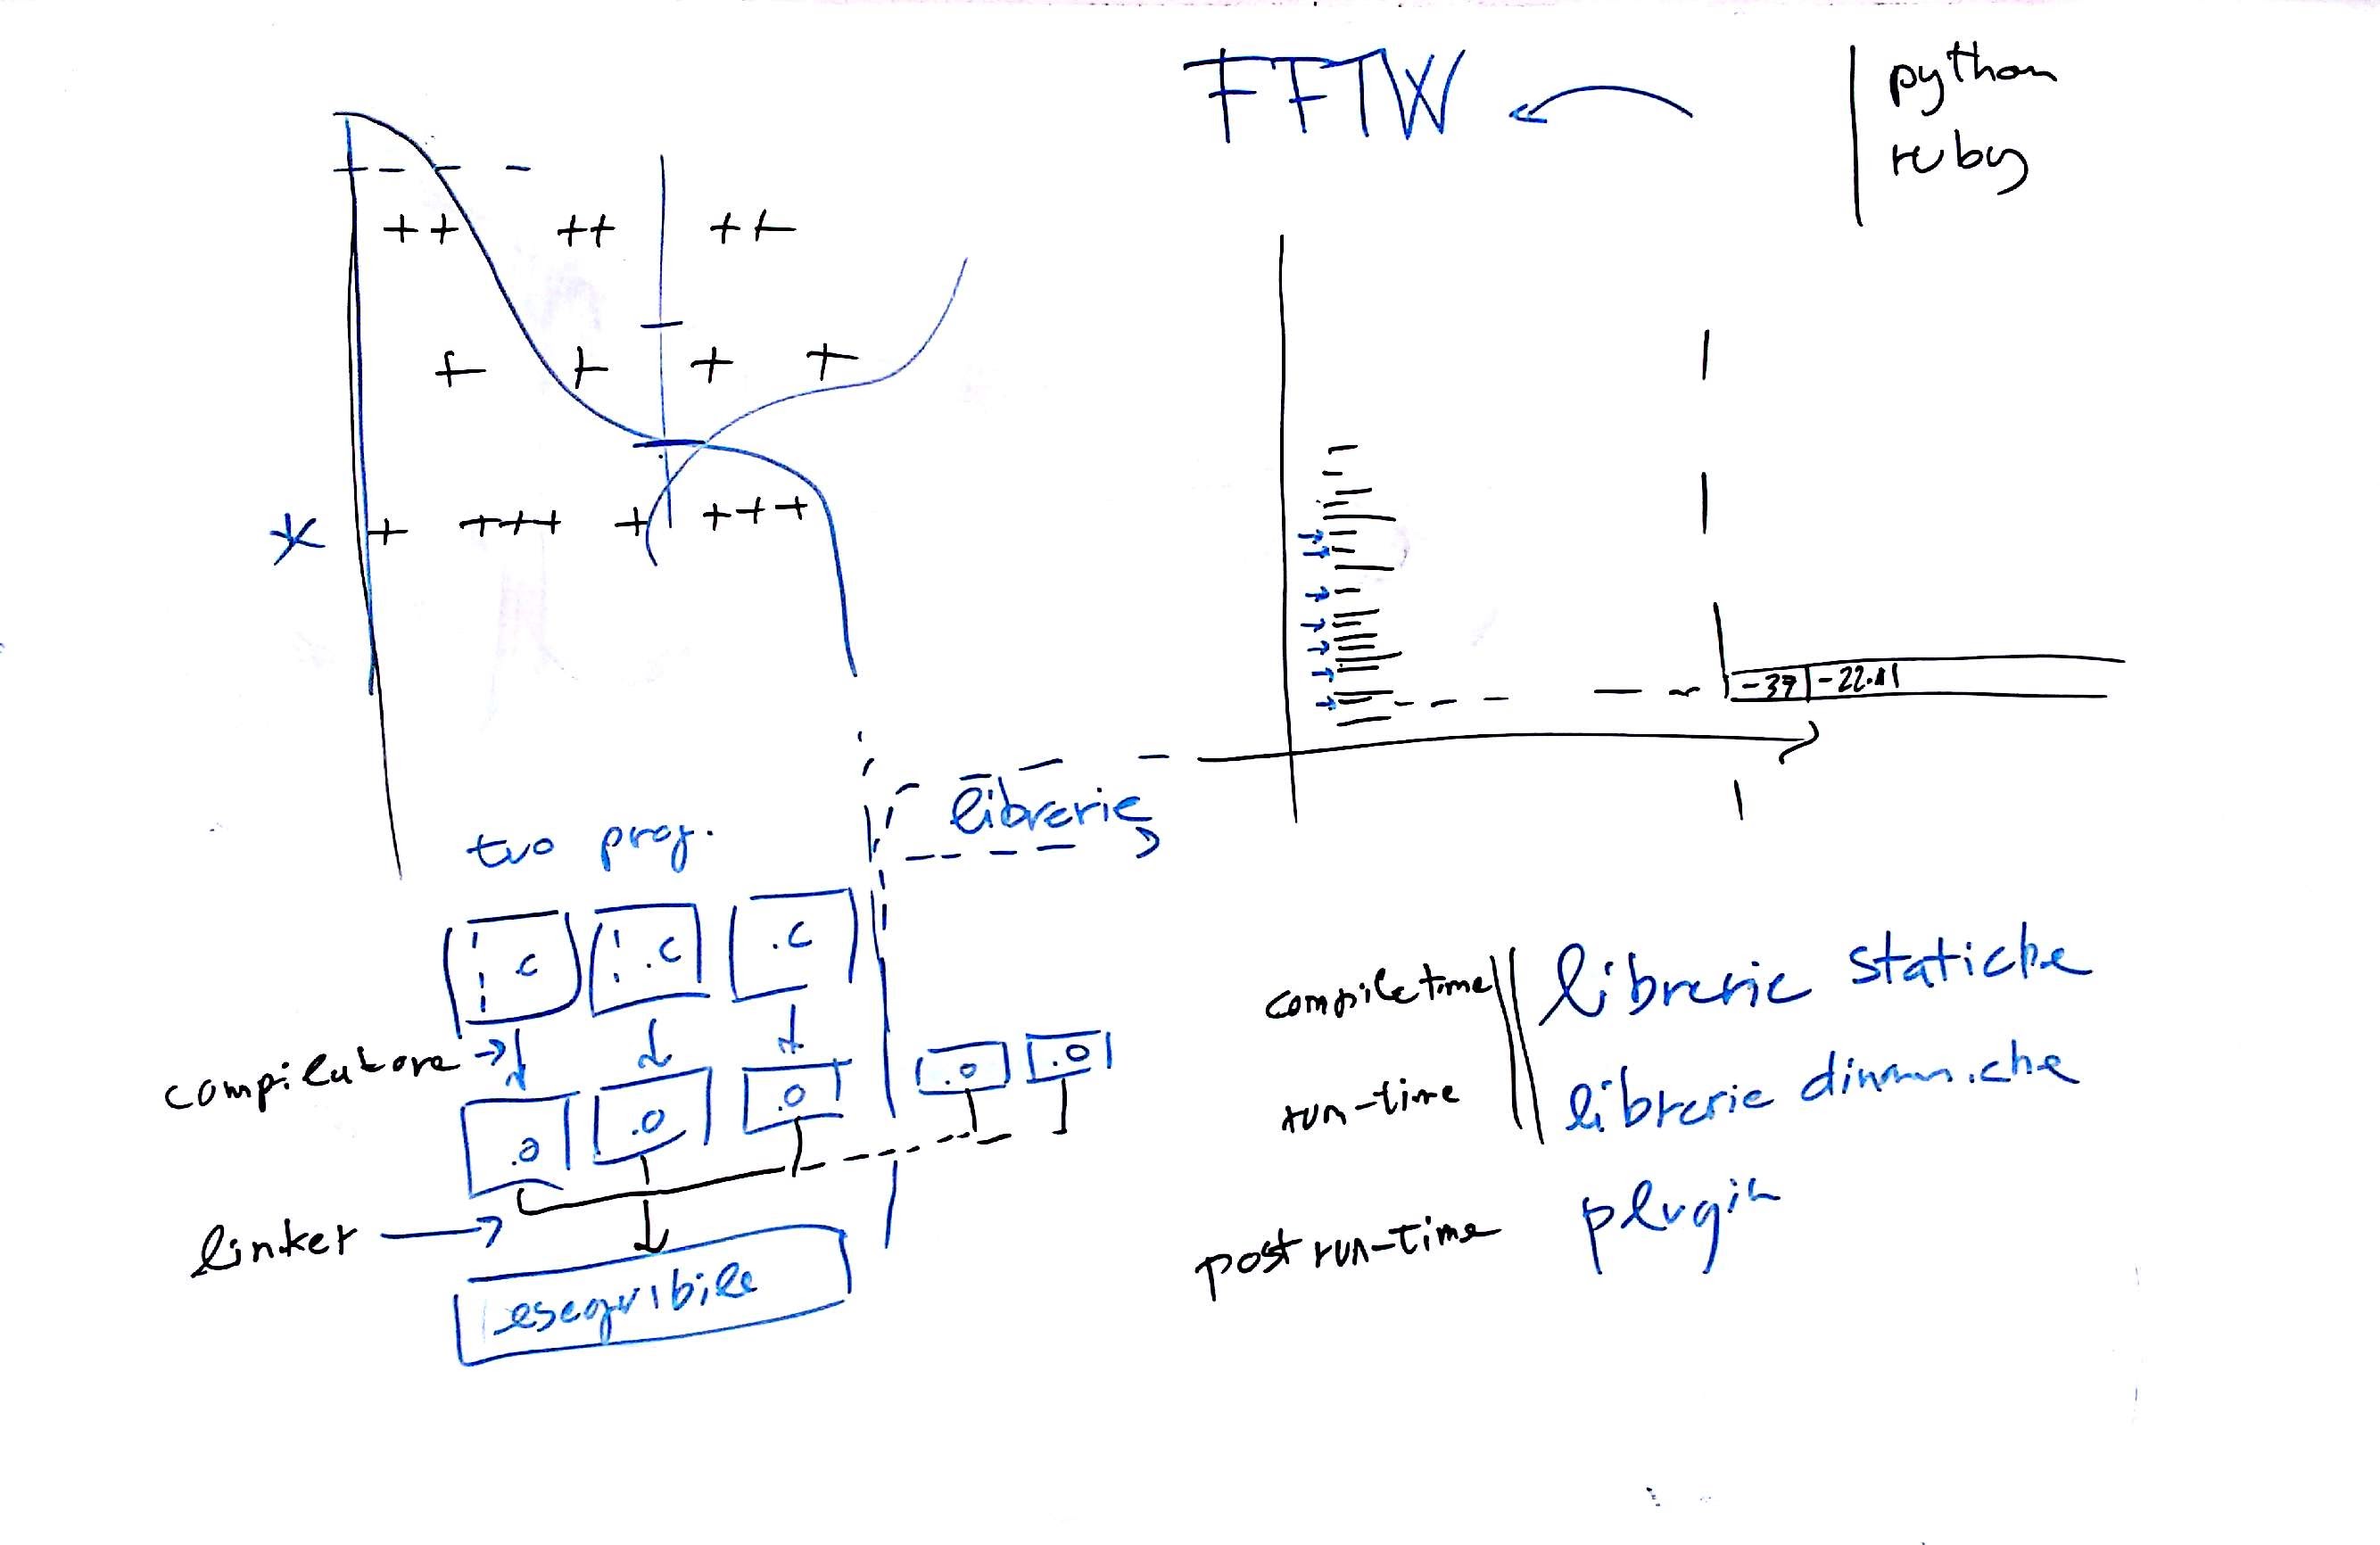 FFTW
python
ruby
++ ++ ++
+ + + +
* + +++ + +++
-37 -22.11
librerie
tuo prog.
.c .c .c
compilatore
.o .o .o .o .o
linker
eseguibile
compile time librerie statiche
run-time librerie dinamiche
post run-time plugin